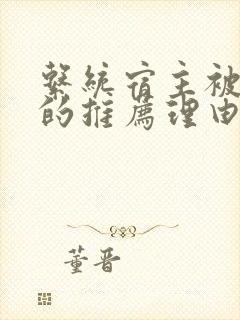 繫統宿主被
的推薦理由
董晋